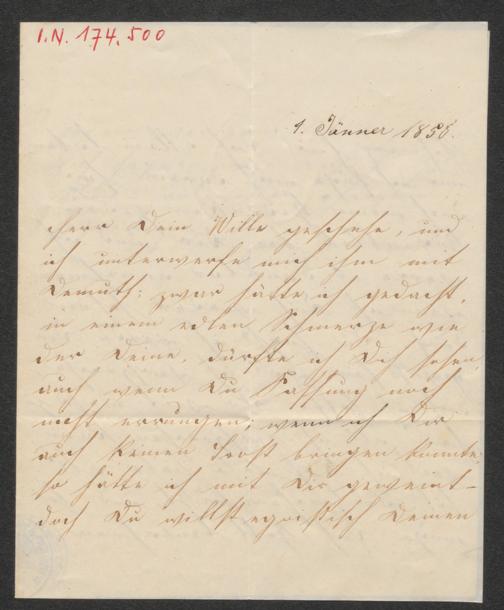 I.N. 174.500
1. Jänner 1856.
Herr Dein Wille geschehe, und
ich unterwerfe mich ihm mit
Demuth; zwar hätte ich gedacht,
in einem edlen Schmerze wie
der Deine, dürfte ich Dich sehen,
auch wenn Du Fassung noch
nicht errungen; wenn ich Dir
auch keinen Trost bringen konnte,
so hätte ich mit Dir geweint –
doch Du willst egoistisch Deinen